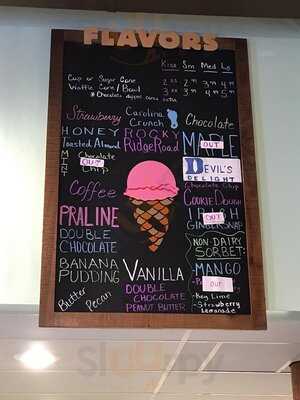 FLAVORS
Kiss Sm Med Lg
Cup or Sugar Cone
Waffle Cone / Bowl
* Chocolate dipped cones extra
Strawberry
HONEY
Toasted Almond
MINT
Chocolate
OUT
Chip
Coffee
PRALINE
DOUBLE
CHOCOLATE
BANANA
PUDDING
Butter Pecan
Carolina
Crunch
ROCKY
Ridge Road
VANILLA
DOUBLE
CHOCOLATE
PEANUT BUTTER
Chocolate
MAPLE
OUT
DEVIL'S
DELIGHT
Chocolate Chip
COOKIE DOUGH
OUT
IRISH
GINGERSNAP
NON-DAIRY
SORBET:
-MANGO
OUT
-Key Lime
-Strawberry
Lemonade